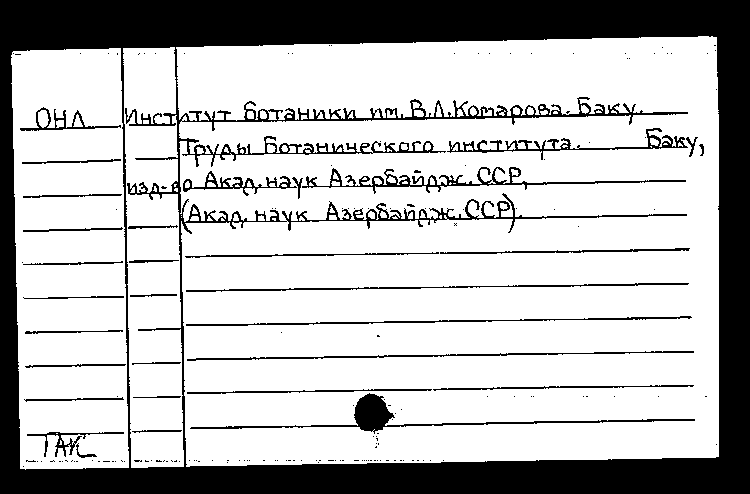 ОНЛ Институт ботаники им. В.Л.Комарова. Баку.
Труды Ботанического института. Баку,
изд-во Акад. наук Азербайдж. ССР,
(Акад. наук Азербайдж. ССР).
ТАК